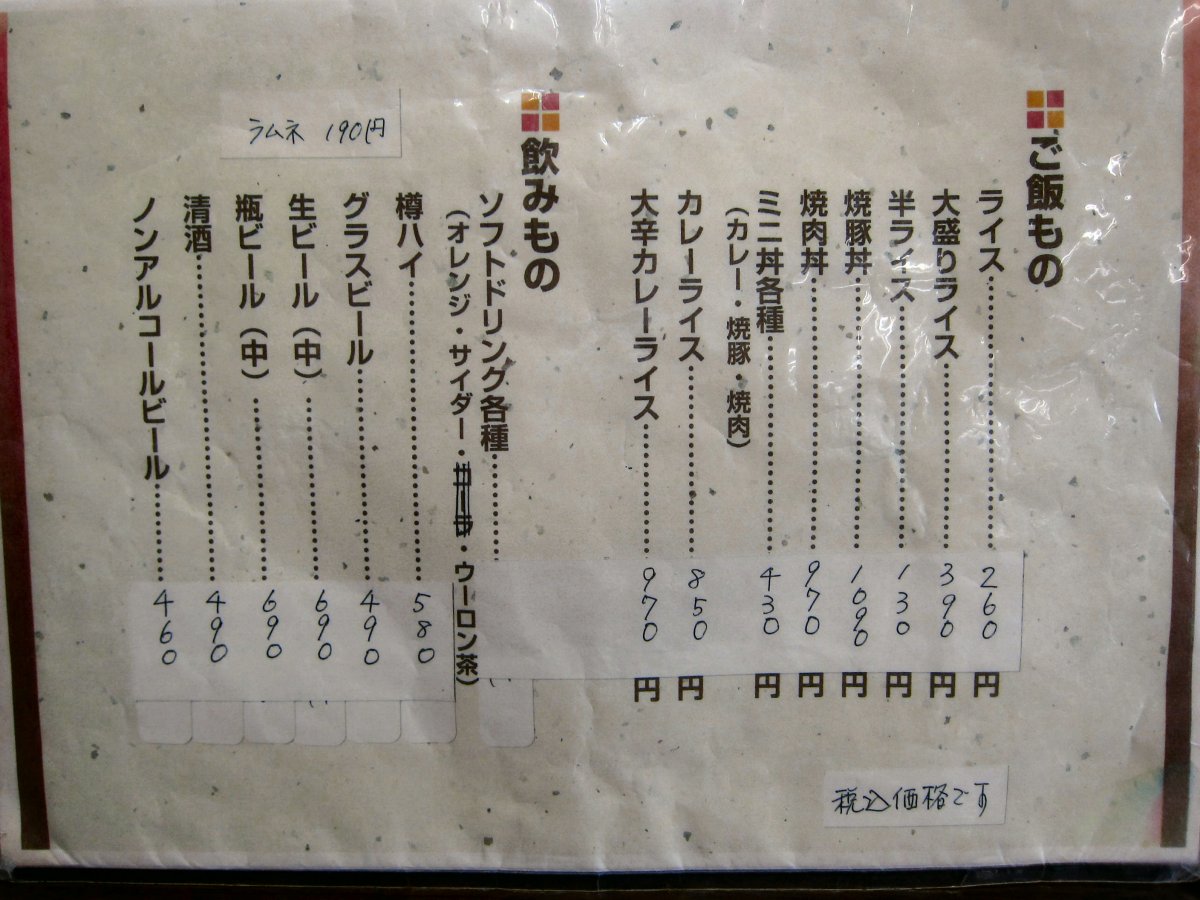 ご飯もの
ライス 260円
大盛りライス 390円
半ライス 130円
焼豚丼 1090円
焼肉丼 970円
ミニ丼各種 430円
(カレー・焼豚・焼肉)
カレーライス 850円
大辛カレーライス 970円
飲みもの
ソフトドリング各種
(オレンジ・サイダー・ウーロン茶)
樽ハイ 580
グラスビール 490
生ビール(中) 690
瓶ビール(中) 690
清酒 490
ノンアルコールビール 460
ラムネ 190円
税込価格です